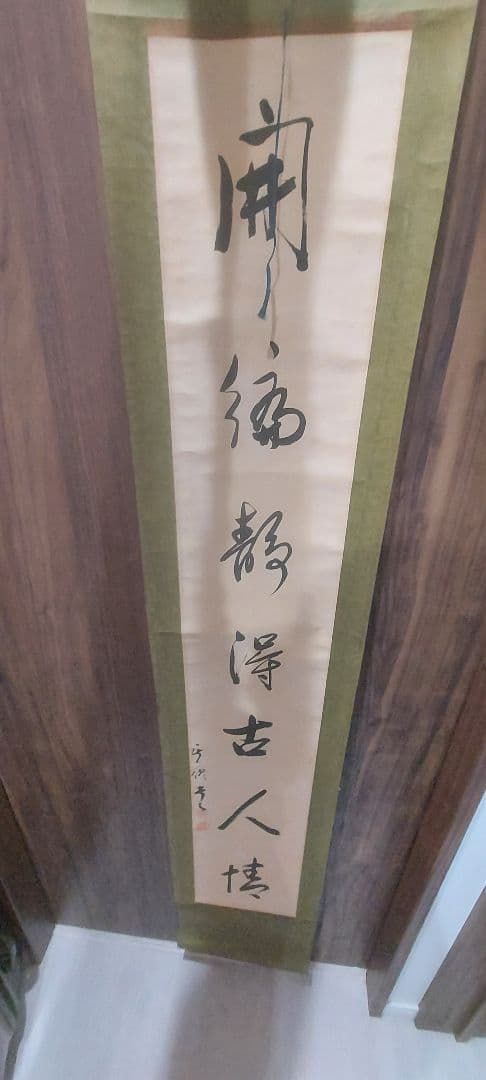 開編靜得古人情